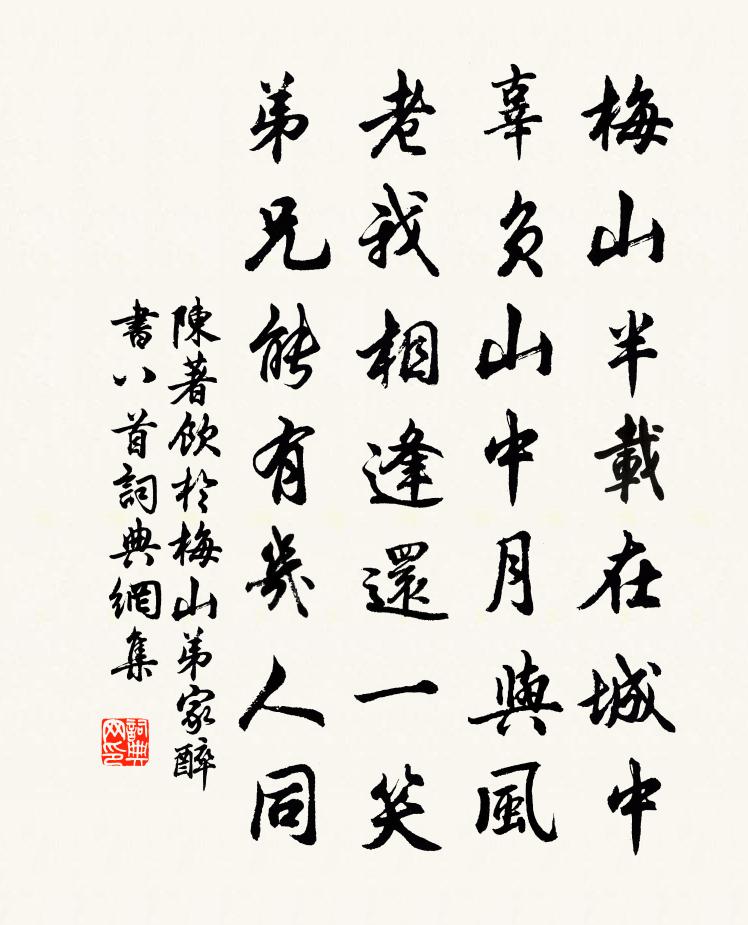 梅山半載在城中
辜負山中月與風
老我相逢還一笑
弟兄能有幾人同
陳著飲於梅山弟家醉
書八首詞典網集
詞典网印